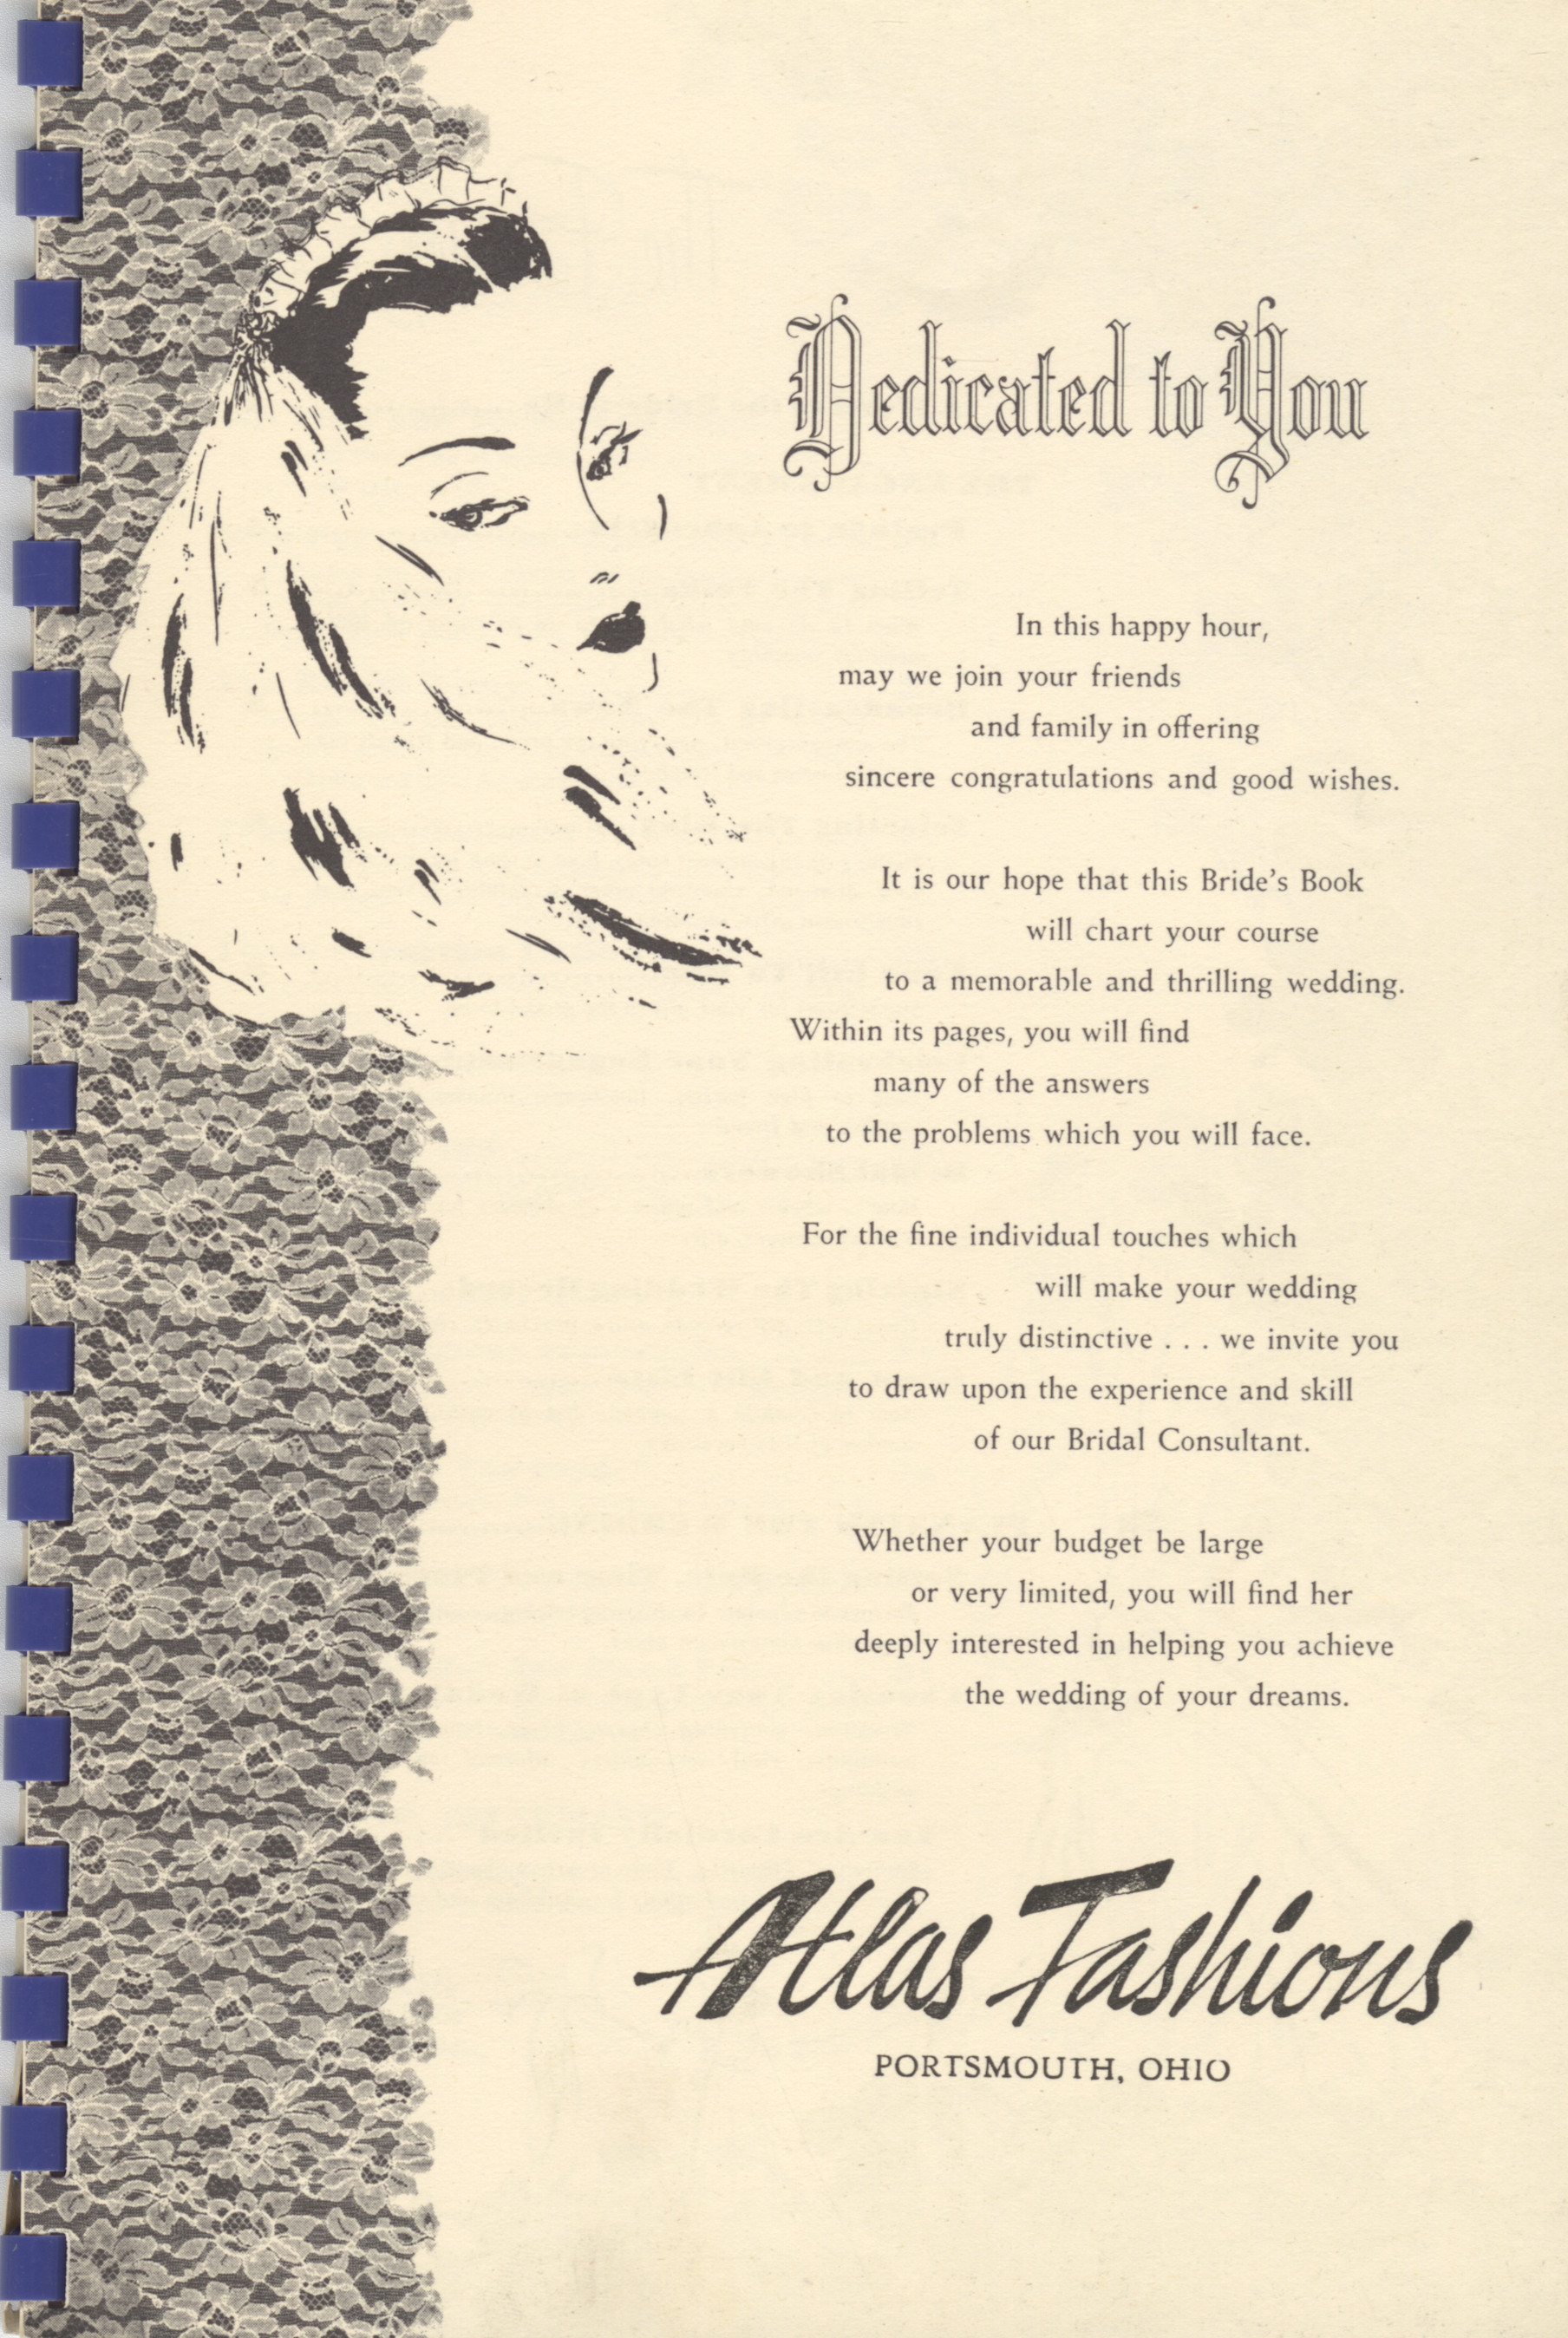 Dedicated to You
In this happy hour,
may we join your friends
and family in offering
sincere congratulations and good wishes.
It is our hope that this Bride's Book
will chart your course
to a memorable and thrilling wedding.
Within its pages, you will find
many of the answers
to the problems which you will face.
For the fine individual touches which
will make your wedding
truly distinctive . . . we invite you
to draw upon the experience and skill
of our Bridal Consultant.
Whether your budget be large
or very limited, you will find her
deeply interested in helping you achieve
the wedding of your dreams.
Atlas Fashions
PORTSMOUTH, OHIO